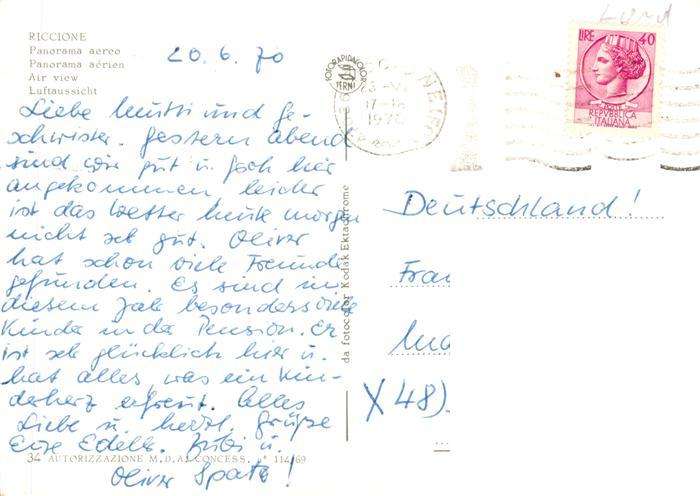 RICCIONE
Panorama aereo
Panorama aérien
Air view
Luftaussicht
20.6.70
FOTORAPIDACOLOR
TERNI
17-18
1970
LIRE 40
POSTE
REPVBBLICA
ITALIANA
Liebe Mutti und Ge-
schwister. Gestern Abend
sind wir gut u. froh hier
angekommen leider
ist das Wetter heute morgen
nicht seh gut. Oliver
hat schon viele Freunde
gefunden. Es sind in
diesem Jahr besonders viele
Kinder in der Pension. Er
ist seh glücklich hier u.
hat alles, was ein Kin-
derherz erfreut. Alles
Liebe u. herzl. Grüße
Eure Bubi u.
Oliver Spatz!
da fotocolor Kodak Ektachrome
Deutschland!
Fra
X 48).
34 AUTORIZZAZIONE M.D.A. CONCESS. n° 114/69